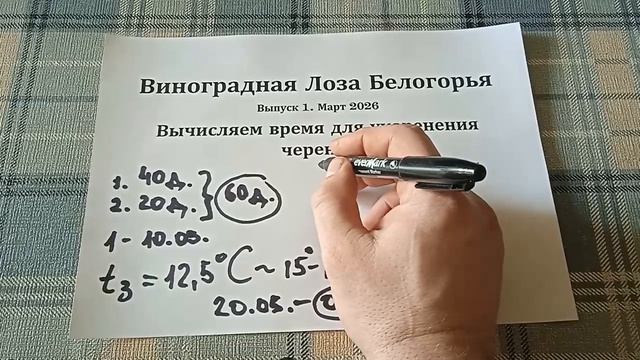 Виноградная Лоза Белогорья
Выпуск 1. Март 2026
Вычисляем время для укоренения
1. 40д.
2. 20д.
60д.
1 - 10.05.
t₃ = 12,5°C ~ 15°-
20.05. -
everMark